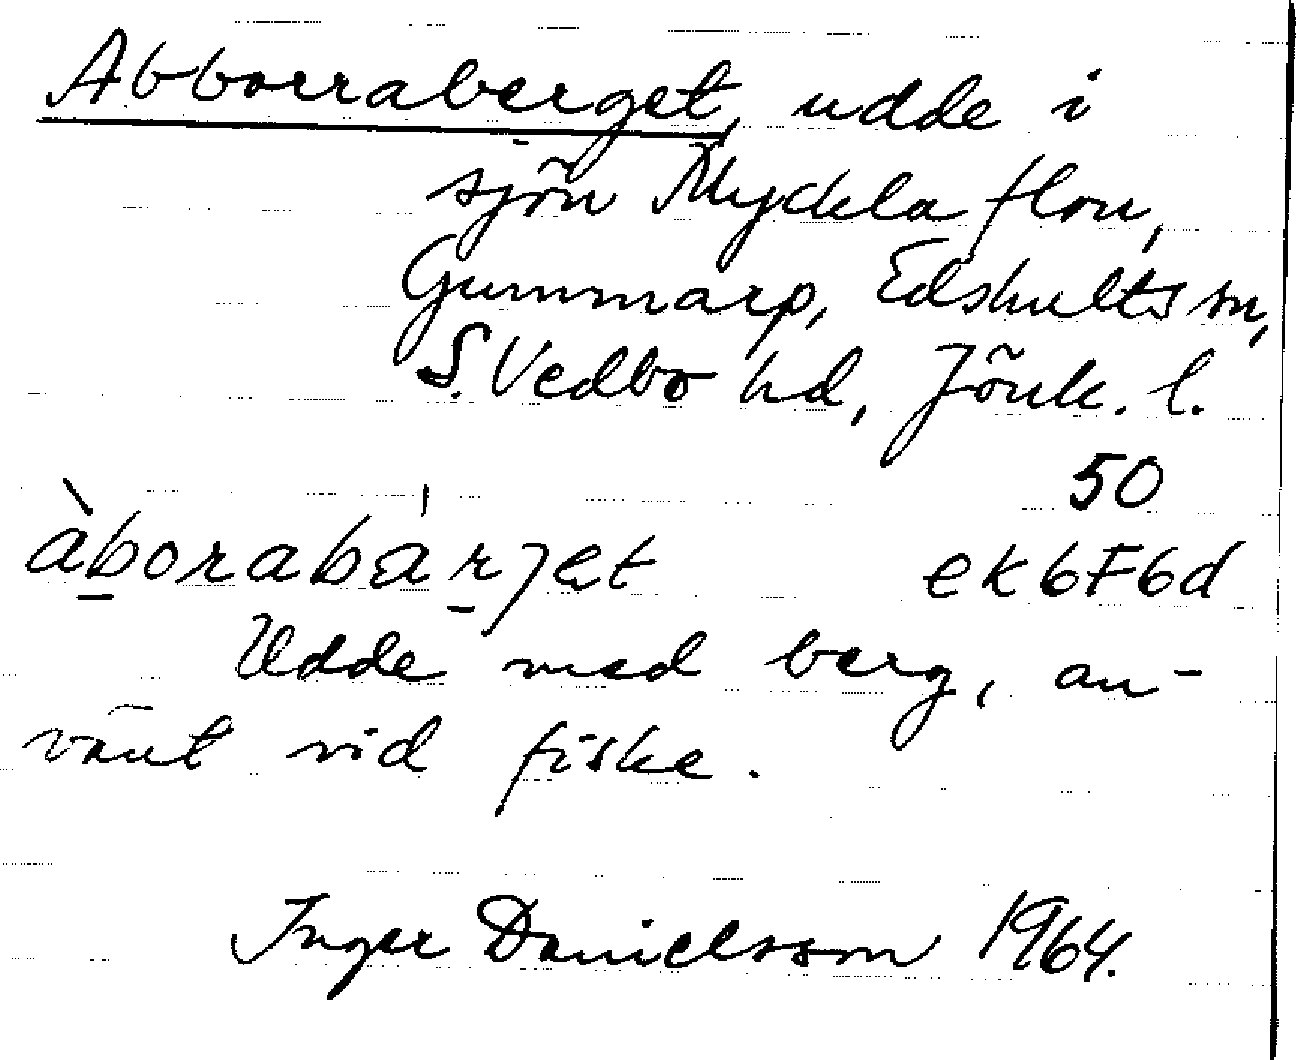 Abborraberget, udde i
sjön Myckla flon,
Gummarp, Edshults sn,
S. Vedbo hd, Jönk. l.
50
àb̲orabár̲jet ek6F6d
Udde med berg, an-
vänt vid fiske.
Inger Danielsson 1964.